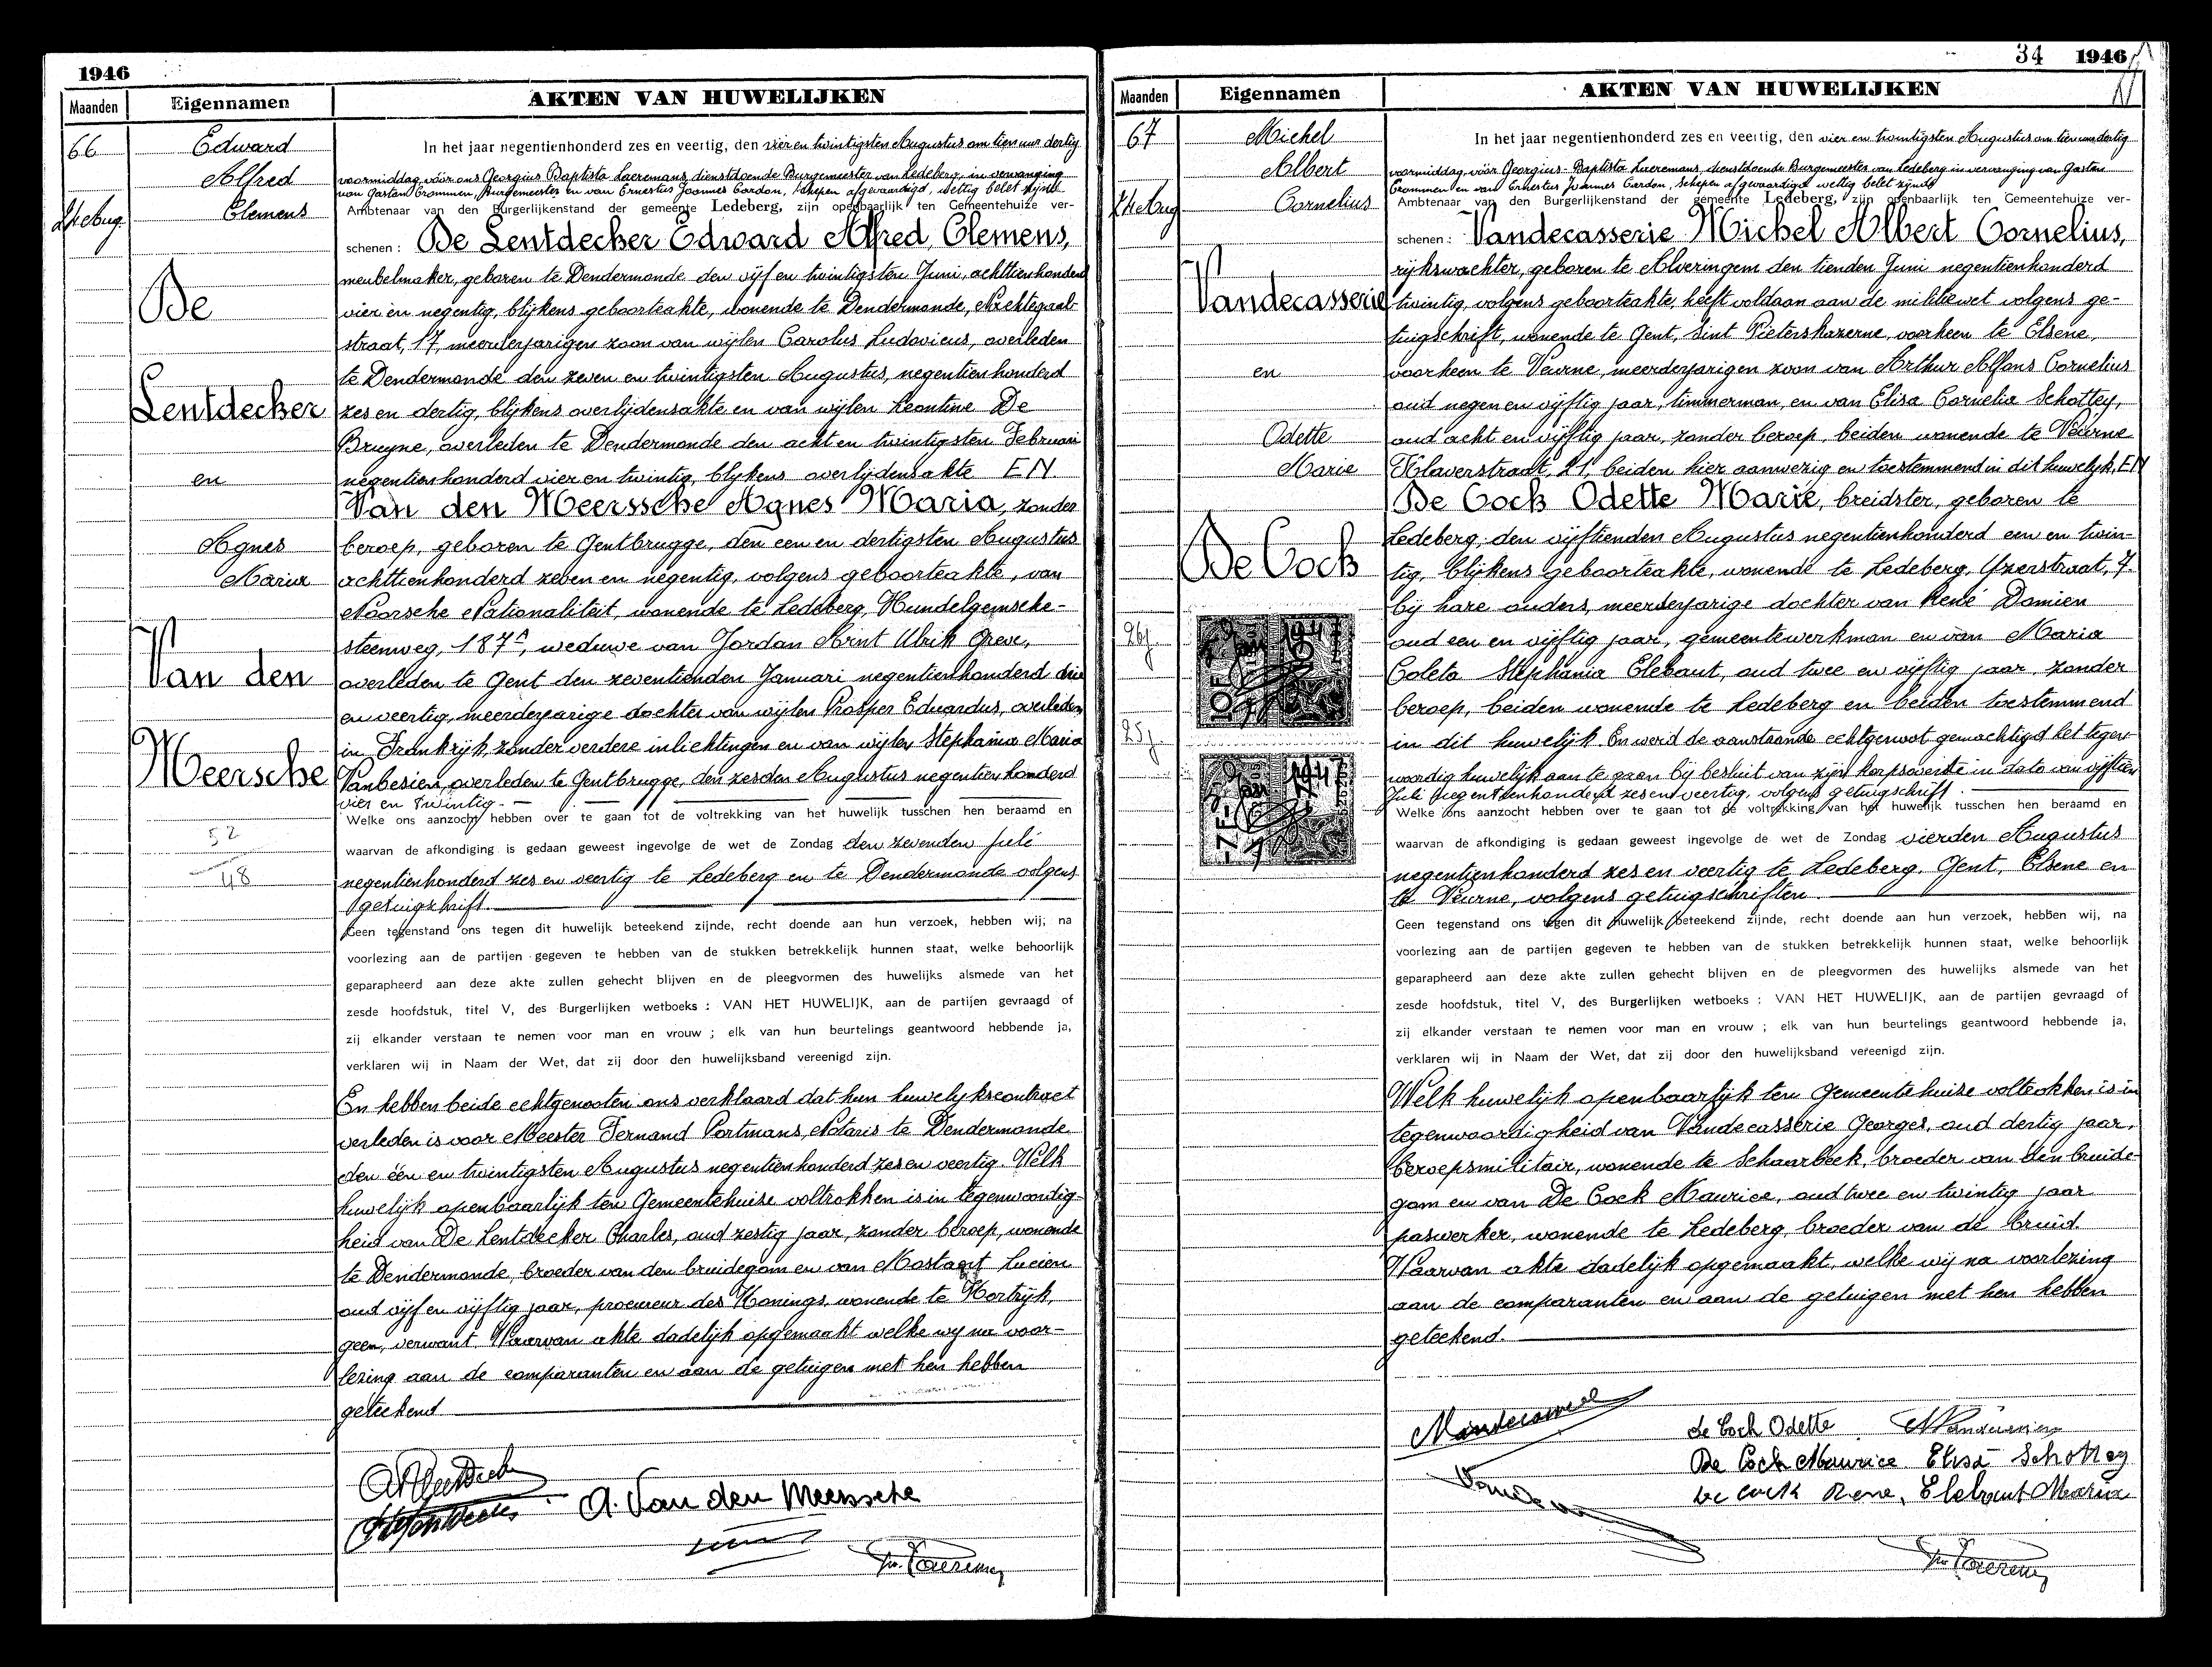 1946
Maanden
Eigennamen
AKTEN VAN HUWELIJKEN
66
Edward
Alfred
Clemens
De
Lentdecker
en
Agnes
Maria
Van den
Meersche
52
48
In het jaar negentienhonderd zes en veertig, den vier en twintigsten Augustus om tien uur dertig
voormiddag, vóór ons Georgius Baptista Laeremans, dienstdoende Burgemeester van Ledeberg, in vervanging
van Gaston Crommen, Burgemeester en van Ernestus Joannes Cardon, schepen afgevaardigd, wettig belet zijnde
Ambtenaar van den Burgerlijkenstand der gemeente Ledeberg, zijn openbaarlijk ten Gemeentehuize ver-
schenen : De Lentdecker Edward Alfred, Clemens,
meubelmaker, geboren te Dendermonde den vijf en twintigsten Juni, achttienhonderd
vier en negentig, blijkens geboorteakte, wonende te Dendermonde, Nachtegaal-
straat, 17, meerderjarigen zoon van wijlen Carolus Ludovicus, overleden
te Dendermonde den zeven en twintigsten Augustus, negentienhonderd
zes en dertig, blijkens overlijdensakte en van wijlen Leontine De
Bruyne, overleden te Dendermonde den acht en twintigsten Februari
negentienhonderd vier en twintig, blijkens overlijdensakte EN
Van den Meerssche Agnes Maria, zonder
beroep, geboren te Gentbrugge, den een en dertigsten Augustus
achttienhonderd zeven en negentig, volgens geboorteakte, van
Noorsche Nationaliteit, wonende te Ledeberg, Hundelgemsche-
steenweg, 187A, weduwe van Jordan Arint Ulrik Greve,
overleden te Gent den zeventienden Januari negentienhonderd drie
en veertig, meerderjarige dochter van wijlen Prosper Eduardus, overleden
in Frankrijk, zonder verdere inlichtingen en van wijlen Stephania Maria
Vanbesien, overleden te Gentbrugge, den zesden Augustus negentienhonderd
vier en twintig.
Welke ons aanzocht hebben over te gaan tot de voltrekking van het huwelijk tusschen hen beraamd en
waarvan de afkondiging is gedaan geweest ingevolge de wet de Zondag den zevenden Juli
negentienhonderd zes en veertig te Ledeberg en te Dendermonde volgens
getuigschrift.
Geen tegenstand ons tegen dit huwelijk beteekend zijnde, recht doende aan hun verzoek, hebben wij, na
voorlezing aan de partijen gegeven te hebben van de stukken betrekkelijk hunnen staat, welke behoorlijk
geparapheerd aan deze akte zullen gehecht blijven en de pleegvormen des huwelijks alsmede van het
zesde hoofdstuk, titel V, des Burgerlijken wetboeks : VAN HET HUWELIJK, aan de partijen gevraagd of
zij elkander verstaan te nemen voor man en vrouw ; elk van hun beurtelings geantwoord hebbende ja,
verklaren wij in Naam der Wet, dat zij door den huwelijksband vereenigd zijn.
En hebben beide echtgenooten ons verklaard dat hun huwelijkscontract
verleden is voor Meester Fernand Portmans, Notaris te Dendermonde
den één en twintigsten Augustus negentienhonderd zes en veertig. Welk
huwelijk openbaarlijk ten Gemeentehuize voltrokken is in tegenwoordig-
heid van De Lentdecker Charles, oud zestig jaar, zonder beroep, wonende
te Dendermonde, broeder van den bruidegom en van Mostaert Lucien
oud vijf en vijftig jaar, procureur des Konings, wonende te Kortrijk,
geen verwant. Waarvan akte dadelijk opgemaakt welke wij na voor-
lezing aan de comparanten en aan de getuigen met hen hebben
geteekend
A. Van den Meerssche
34 1946
Maanden
Eigennamen
AKTEN VAN HUWELIJKEN
67
Michel
Albert
Cornelius
Vandecasserie
en
Odette
Marie
De Cock
26j
25j.
In het jaar negentienhonderd zes en veertig, den vier en twintigsten Augustus om tien uur dertig
voormiddag, vóór Georgius-Baptista Laeremans, dienstdoende Burgemeester van Ledeberg in vervanging van Gaston
Crommen en van Ernestus Joannes Cardon, schepen afgevaardigd wettig belet zijnde
Ambtenaar van den Burgerlijkenstand der gemeente Ledeberg, zijn openbaarlijk ten Gemeentehuize ver-
schenen : Vandecasserie Michel Albert Cornelius,
rijkswachter, geboren te Alveringem den tienden Juni negentienhonderd
twintig, volgens geboorteakte, heeft voldaan aan de militiewet volgens ge-
tuigschrift, wonende te Gent, Sint Pieterskazerne, voorheen te Elsene,
voorheen te Veurne, meerderjarigen zoon van Arthur Alfons Cornelius
oud negen en vijftig jaar, timmerman, en van Elisa Cornelia Schottey,
oud acht en vijftig jaar, zonder beroep, beiden wonende te Veurne
Klaverstraat, 21, beiden hier aanwezig en toestemmend in dit huwelijk, EN
De Cock Odette Marie, breidster, geboren te
Ledeberg, den vijftienden Augustus negentienhonderd een en twin-
tig, blijkens geboorteakte, wonende te Ledeberg, Yzerstraat, 7.
bij hare ouders, meerderjarige dochter van René Damien
oud een en vijftig jaar, gemeentewerkman en van Maria
Coleta Stephania Elebaut, oud twee en vijftig jaar, zonder
beroep, beiden wonende te Ledeberg en beiden toestemmend
in dit huwelijk. En werd de aanstaande echtgenoot gemachtigd het tegen-
woordig huwelijk aan te gaan bij besluit van zijn korpsoverste in dato van vijftien
Juli negentienhonderd zes en veertig, volgens getuigschrift.
Welke ons aanzocht hebben over te gaan tot de voltrekking van het huwelijk tusschen hen beraamd en
waarvan de afkondiging is gedaan geweest ingevolge de wet de Zondag vierden Augustus
negentienhonderd zes en veertig te Ledeberg, Gent, Elsene en
te Veurne, volgens getuigschriften.
Geen tegenstand ons tegen dit huwelijk beteekend zijnde, recht doende aan hun verzoek, hebben wij, na
voorlezing aan de partijen gegeven te hebben van de stukken betrekkelijk hunnen staat, welke behoorlijk
geparapheerd aan deze akte zullen gehecht blijven en de pleegvormen des huwelijks alsmede van het
zesde hoofdstuk, titel V, des Burgerlijken wetboeks : VAN HET HUWELIJK, aan de partijen gevraagd of
zij elkander verstaan te nemen voor man en vrouw ; elk van hun beurtelings geantwoord hebbende ja,
verklaren wij in Naam der Wet, dat zij door den huwelijksband vereenigd zijn.
Welk huwelijk openbaarlijk ten Gemeentehuize voltrokken is in
tegenwoordigheid van Vandecasserie Georges, oud dertig jaar,
beroepsmilitair, wonende te Schaarbeek, broeder van den bruide-
gom en van De Cock Maurice, oud twee en twintig jaar
paswerker, wonende te Ledeberg, broeder van de bruid.
Waarvan akte dadelijk opgemaakt, welke wij na voorlezing
aan de comparanten en aan de getuigen met hen hebben
geteekend.
de Cock Odette
De Cock Maurice Elisa Schottey
de Cock Rene, Elebaut Maria